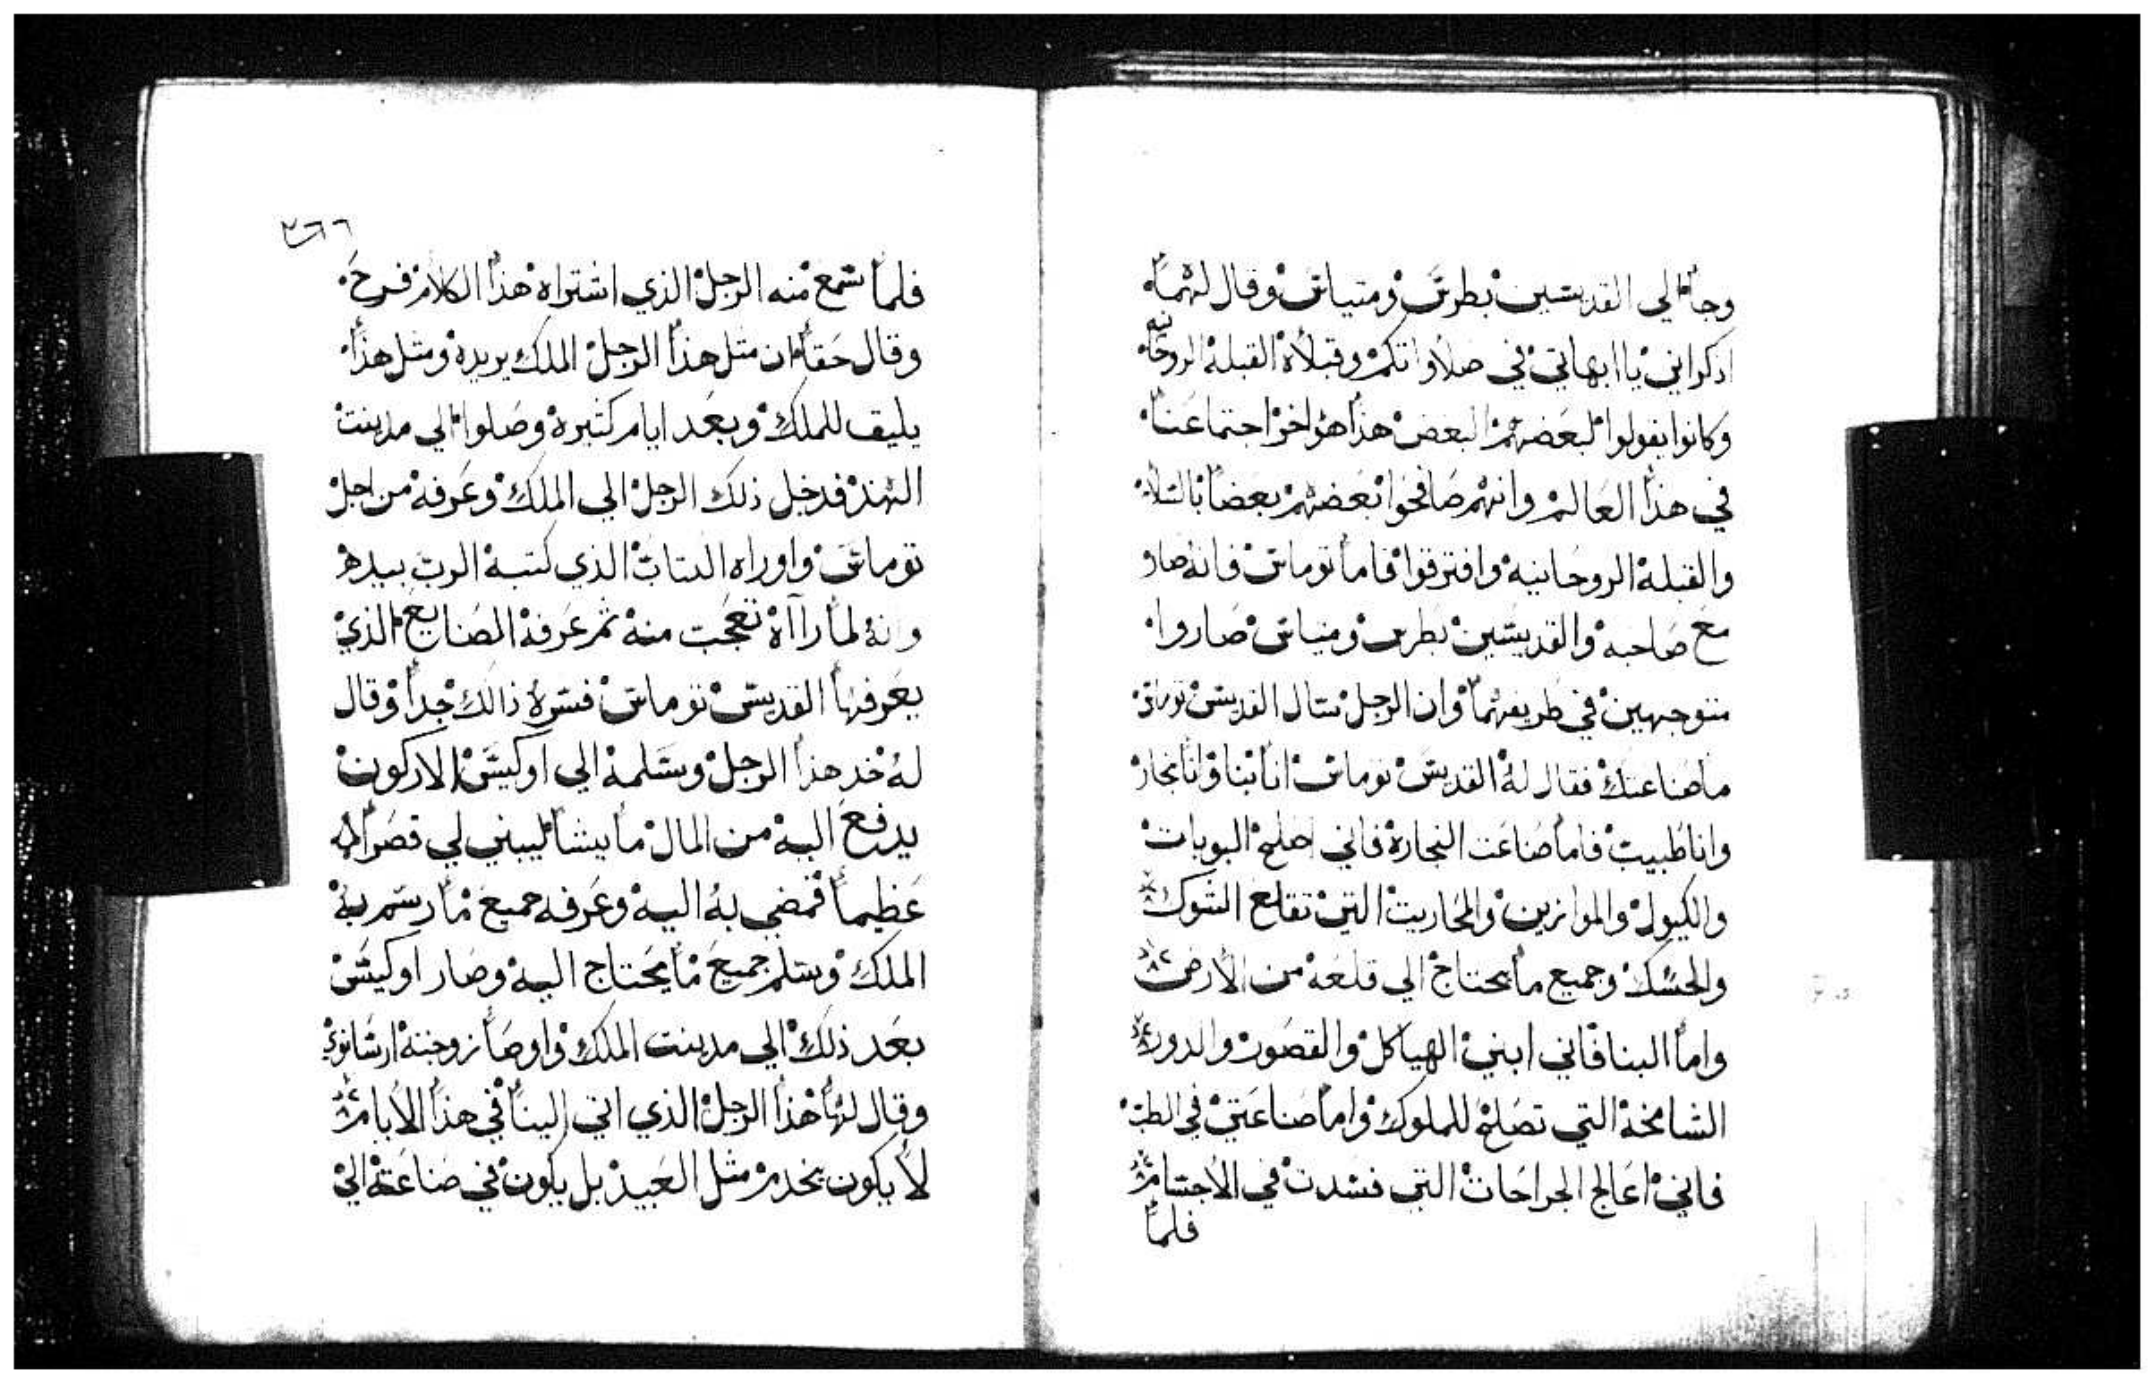 وجا الي القديسين بطرس ومتياس وقال لهما
اذكراني يا ابهاتي في صلاواتكم وقبلاه القبلة الروحانيه
وكانوا يقولوا لبعضهم البعض هذا هو اخر اجتماعنا
في هذا العالم وانهم صافحوا بعضهم بعضا بالسلام
والقبلة الروحانيه وافترقوا فاما توماس فانه صار
مع صاحبه والقديسين بطرس ومتياس صاروا
متوجهين في طريقهما وان الرجل سال القديس توماس
ما صناعتك فقال له القديس توماس انا بنا وانا نجار
وانا طبيب فاما صناعت النجارة فاني اصلح البوبات
والكيول والموازين والمحاريت التي تقلع الشوك
والحسك وجميع ما يحتاج الي قلعة من الارض
واما البنا فاني ابني الهياكل والقصور والدور
الشامخة التي تصلح للملوك واما صناعتي في الطب
فاني اعالج الجراحات التي فسدت في الاجسام
فلما
٢٦٦
فلما سمع منه الرجل الذي اشتراه هذا الكلام فرح
وقال حقا ان مثل هذا الرجل الملك يريده ومثل هذا
يليق للملك وبعد ايام كثيرة وصلوا الي مدينت
الهند فدخل ذلك الرجل الي الملك وعرفه من اجل
توماس واوراه الكتاب الذي كتبه الرب بيده
وانه لما رااه تعجب منه ثم عرفه المصنايع الذي
يعرفها القديس توماس فسره ذالك جدا وقال
له خد هذا الرجل وسلمه الي اوكيس الاركون
يدفع اليه من المال ما يشا ليبني لي قصرا
عظيما فمضي به اليه وعرفه جميع ما رسم به
الملك وسلم جميع ما يحتاج اليه وصار اوكيس
بعد ذلك الي مدينت الملك واوصا زوجته ارسانوي
وقال لها هذا الرجل الذي اتي الينا في هذا الايام
لا يكون يخدم مثل العبيد بل يكون في صناعته الي